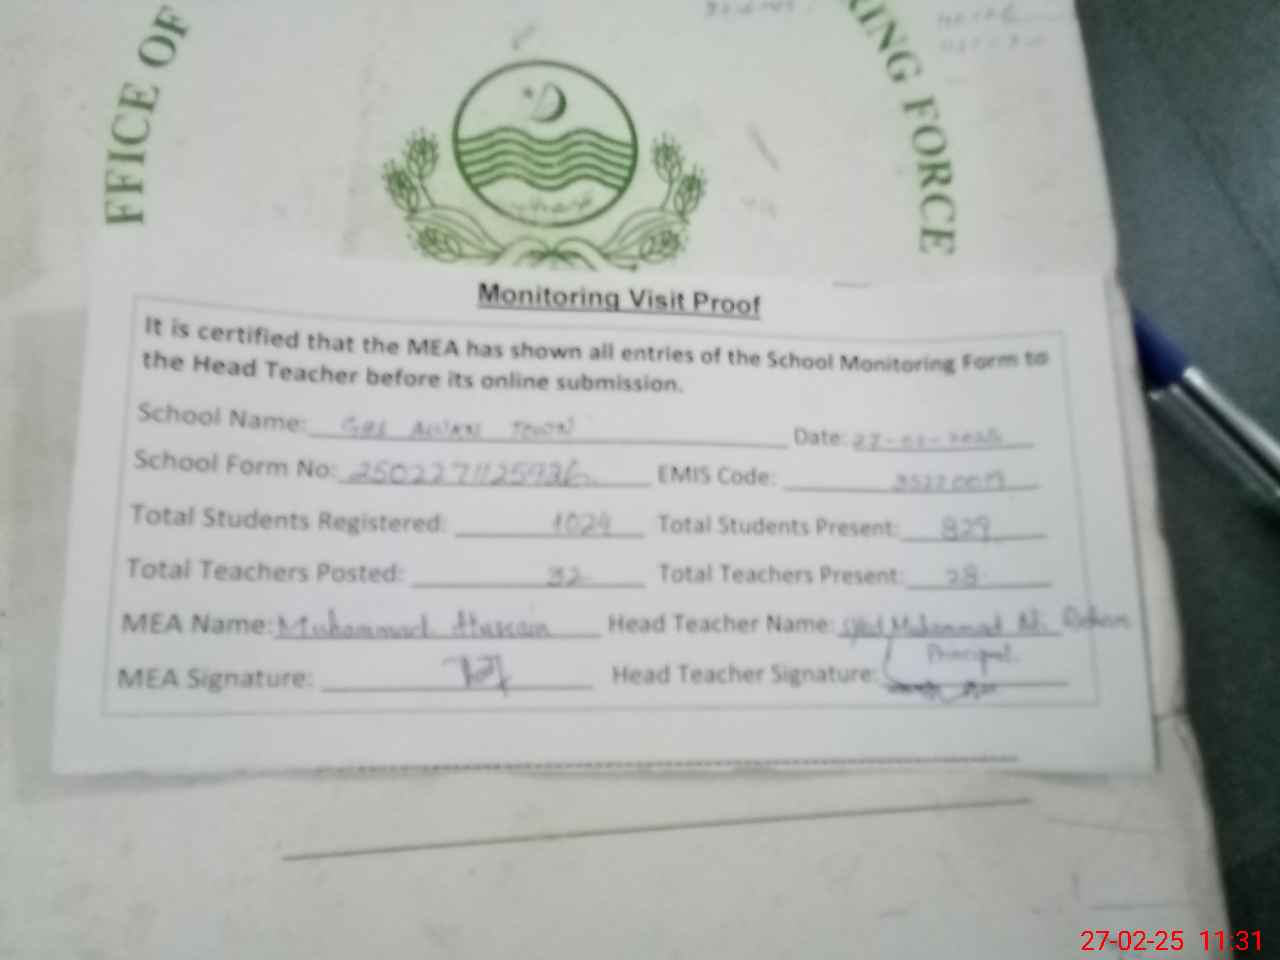 FFICE OF
RING FORCE
Monitoring Visit Proof
It is certified that the MEA has shown all entries of the School Monitoring Form to
the Head Teacher before its online submission.
School Name: TOWN Date: 27-02-2025
School Form No: EMIS Code:
Total Students Registered: 1024 Total Students Present: 829
Total Teachers Posted: 32 Total Teachers Present: 28
MEA Name: Muhammad Hussain Head Teacher Name: Syed Muhammad Ali
Principal
MEA Signature: Head Teacher Signature:
27-02-25 11:31